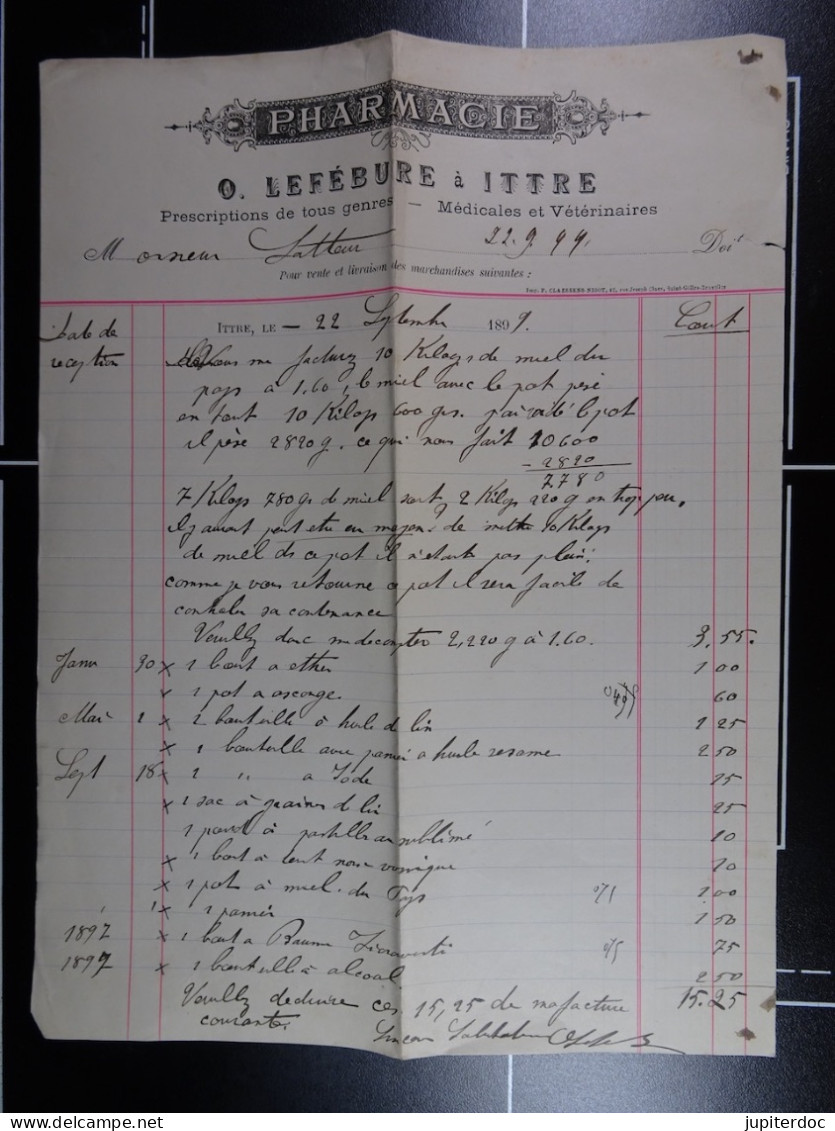 PHARMACIE
O. LEFÉBURE à ITTRE
Prescriptions de tous genres — Médicales et Vétérinaires
Monsieur Latteur 22.9.99. Doit
Pour vente et livraison des marchandises suivantes :
ITTRE, LE — 22 Septembre 1899. Cout
Date de
reception
Vous me facturez 10 Kilogs de miel du
pays à 1.60, le miel avec le pot pèse
en tout 10 Kilogs 600 grs. j'ai vidé le pot
il pèse 2820 g. ce qui nous fait 10600
- 2820
7780
7 Kilogs 780 gr de miel soit 2 Kilogs 220 g en trop peu.
il y aurait peut etre eu moyen de mettre 10 Kilogs
de miel ds ce pot il n'etait pas plein.
comme je vous retourne ce pot il sera facile de
controler sa contenance
Veuillez donc me decompter 2,220 g à 1.60. 3.55.
Janv 30 x 1 bout a ether 1 00
x 1 pot a axonge 60
Mai 1 x 2 bouteille à huile de lin 1 25
x 1 bouteille avec panier a huile sesame 2 50
Sept 18 x 1 " a Iode 25
x 1 sac à graines de lin 25
1 à pastilles au sublimé 10
x 1 bout à noix vomique 20
x 1 pot à miel du Pays 1 00
1 x 1 panier 1 50
1897 x 1 bout a Baume Fioravanti 75
1897 x 1 bouteille à alcool 2 50
Veuillez deduire ces 15,25 de ma facture 15.25
courante.